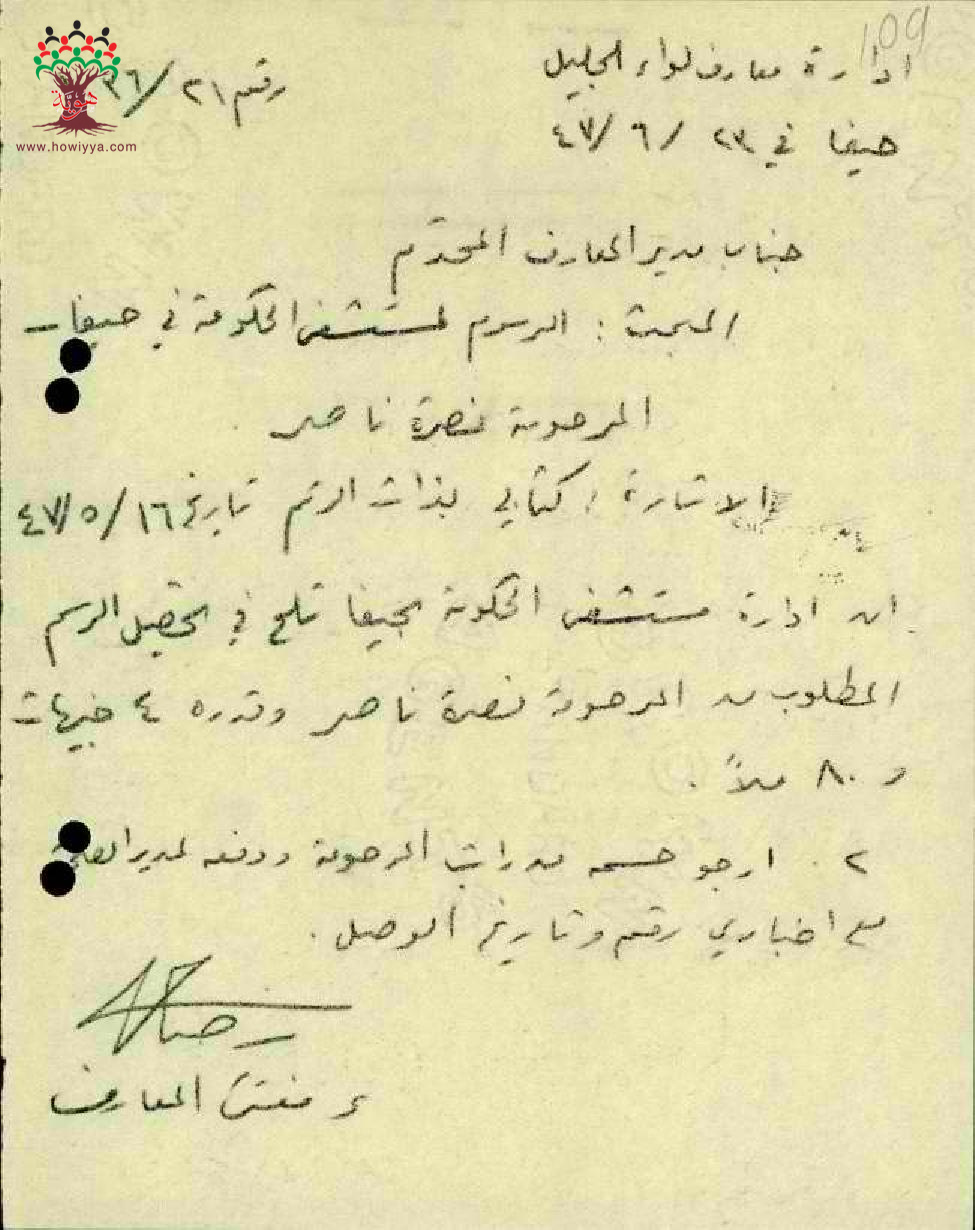 109
ادارة معارف لواء الجليل
رقم ٢١/٣٦
هوية
www.howiyya.com
حيفا في ٢٣ / ٦ / ٤٧
جناب مدير المعارف المحترم
المبحث : الرسوم لمستشفى الحكومة في حيفا –
المرحومة نصرة ناصر
الاشارة : كتابي بذات الرقم تاريخ ١٦ / ٥ / ٤٧
ان ادارة مستشفى الحكومة بحيفا تلح في تحصيل الرسم
المطلوب من المرحومة نصرة ناصر وقدره ٤ جنيهات
و ٨٠ ملاً .
٢ . ارجو حسمه من راتب المرحومة ودفعه لمدير
مع اخباري رقم وتاريخ الوصل .
ع مفتش المعارف